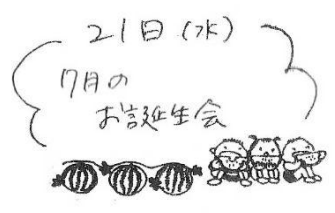 21日（水）
7月の
お誕生会